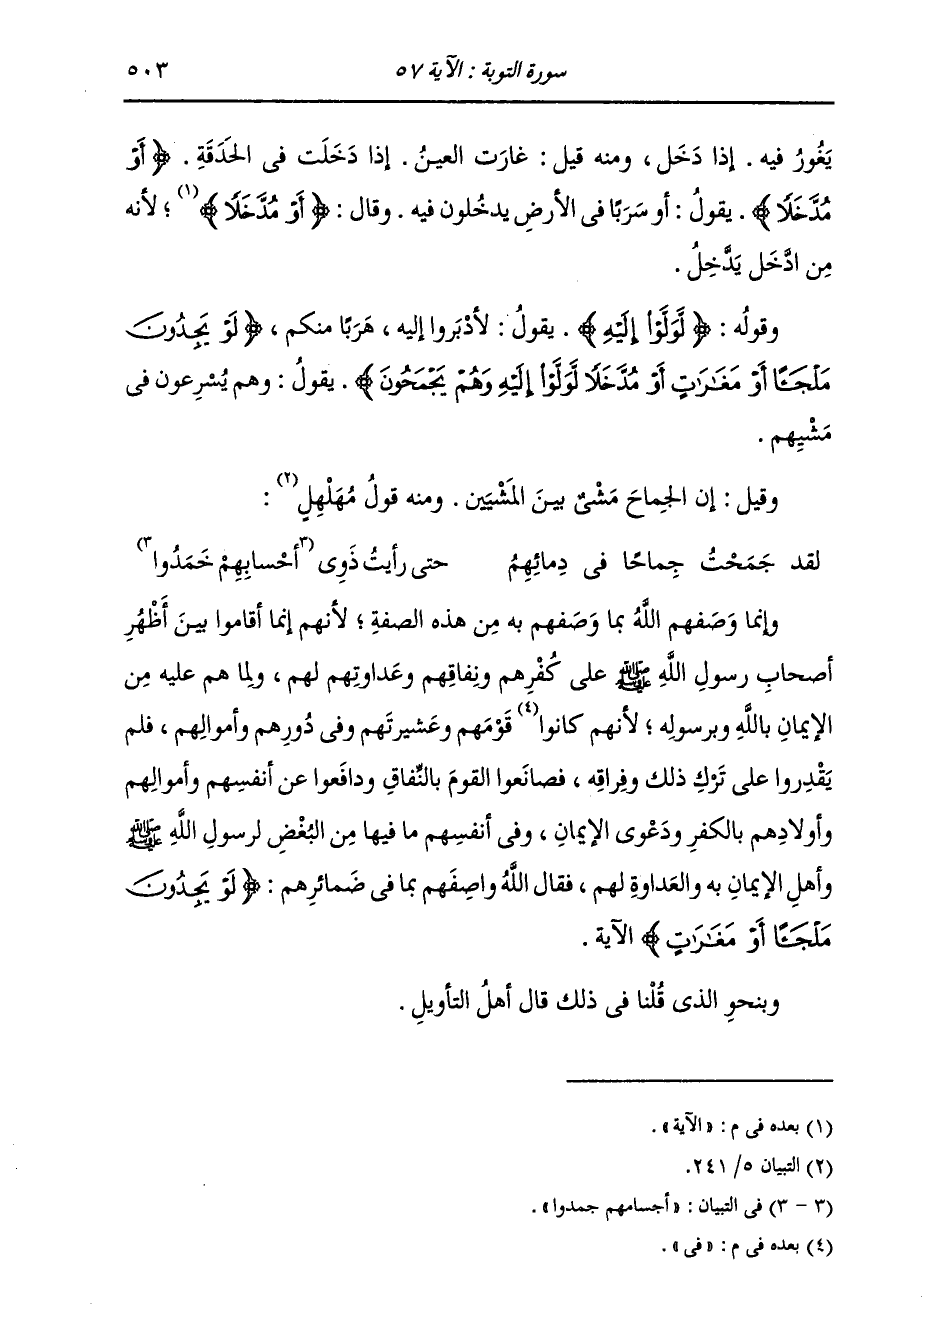 سورة التوبة : الآية ٥٧ ٥٠٣
يَغُورُ فيه . إذا دَخَل ، ومنه قيل : غارَت العينُ . إذا دَخَلَت فى الحَدَقَةِ . ﴿ أَوْ
مُدَّخَلًا ﴾ . يقولُ : أو سَرَبًا فى الأرضِ يدخُلون فيه . وقال : ﴿ أَوْ مُدَّخَلًا ﴾(١) ؛ لأنه
مِن ادَّخَل يَدَّخِلُ .
وقولُه : ﴿ لَّوَلَّوْا إِلَيْهِ ﴾ . يقولُ : لأدْبَروا إليه ، هَرَبًا منكم ، ﴿ لَوْ يَجِدُونَ
مَلْجَـًٔا أَوْ مَغَـٰرَٰتٍ أَوْ مُدَّخَلًا لَّوَلَّوْا إِلَيْهِ وَهُمْ يَجْمَحُونَ ﴾ . يقولُ : وهم يُسْرِعون فى
مَشْيِهم .
وقيل : إن الجِماحَ مَشْىٌ بينَ المَشْيَين . ومنه قولُ مُهَلْهِلٍ(٢) :
لقد جَمَحْتُ جِماحًا فى دِمائِهِمُ حتى رأيتُ ذَوِى (٣أحْسابِهِمْ خَمَدُوا٣)
وإنما وَصَفهم اللَّهُ بما وَصَفهم به مِن هذه الصفةِ ؛ لأنهم إنما أقاموا بينَ أَظْهُرِ
أصحابِ رسولِ اللَّهِ ﷺ على كُفْرِهم ونِفاقِهم وعَداوتِهم لهم ، ولِما هم عليه مِن
الإيمانِ باللَّهِ وبرسولِه ؛ لأنهم كانوا(٤) قَوْمَهم وعَشيرتَهم وفى دُورِهم وأموالِهم ، فلم
يَقْدِروا على تَرْكِ ذلك وفِراقِه ، فصانَعوا القومَ بالنِّفاقِ ودافَعوا عن أنفسِهم وأموالِهم
وأولادِهم بالكفرِ ودَعْوى الإيمانِ ، وفى أنفسِهم ما فيها مِن البُغْضِ لرسولِ اللَّهِ ﷺ
وأهلِ الإيمانِ به والعَداوةِ لهم ، فقال اللَّهُ واصِفَهم بما فى ضَمائرِهم : ﴿ لَوْ يَجِدُونَ
مَلْجَـًٔا أَوْ مَغَـٰرَٰتٍ ﴾ الآية .
وبنحوِ الذى قُلْنا فى ذلك قال أهلُ التأويلِ .
(١) بعده فى م : « الآية » .
(٢) التبيان ٥/ ٢٤١.
(٣ - ٣) فى التبيان : « أجسامهم جمدوا » .
(٤) بعده فى م : « فى » .